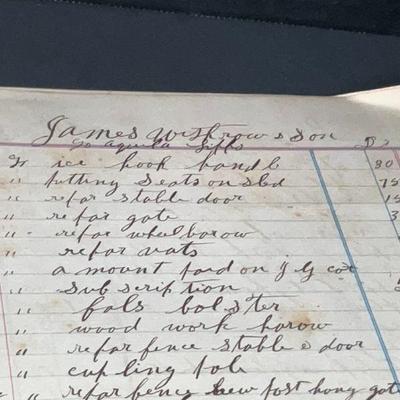 James Withrow & Son
To Aquila Dr
To ice hook handle 30
" putting Seats on sled 75
" repar stable door 15
" repar gate 3
" repar wheelbarow
" repar vats
" a mount pard on J G
" sub scription
" fals bolster
" wood work harow
" repar fence stable & door
" cupling pole
" repar fence new post hong gate